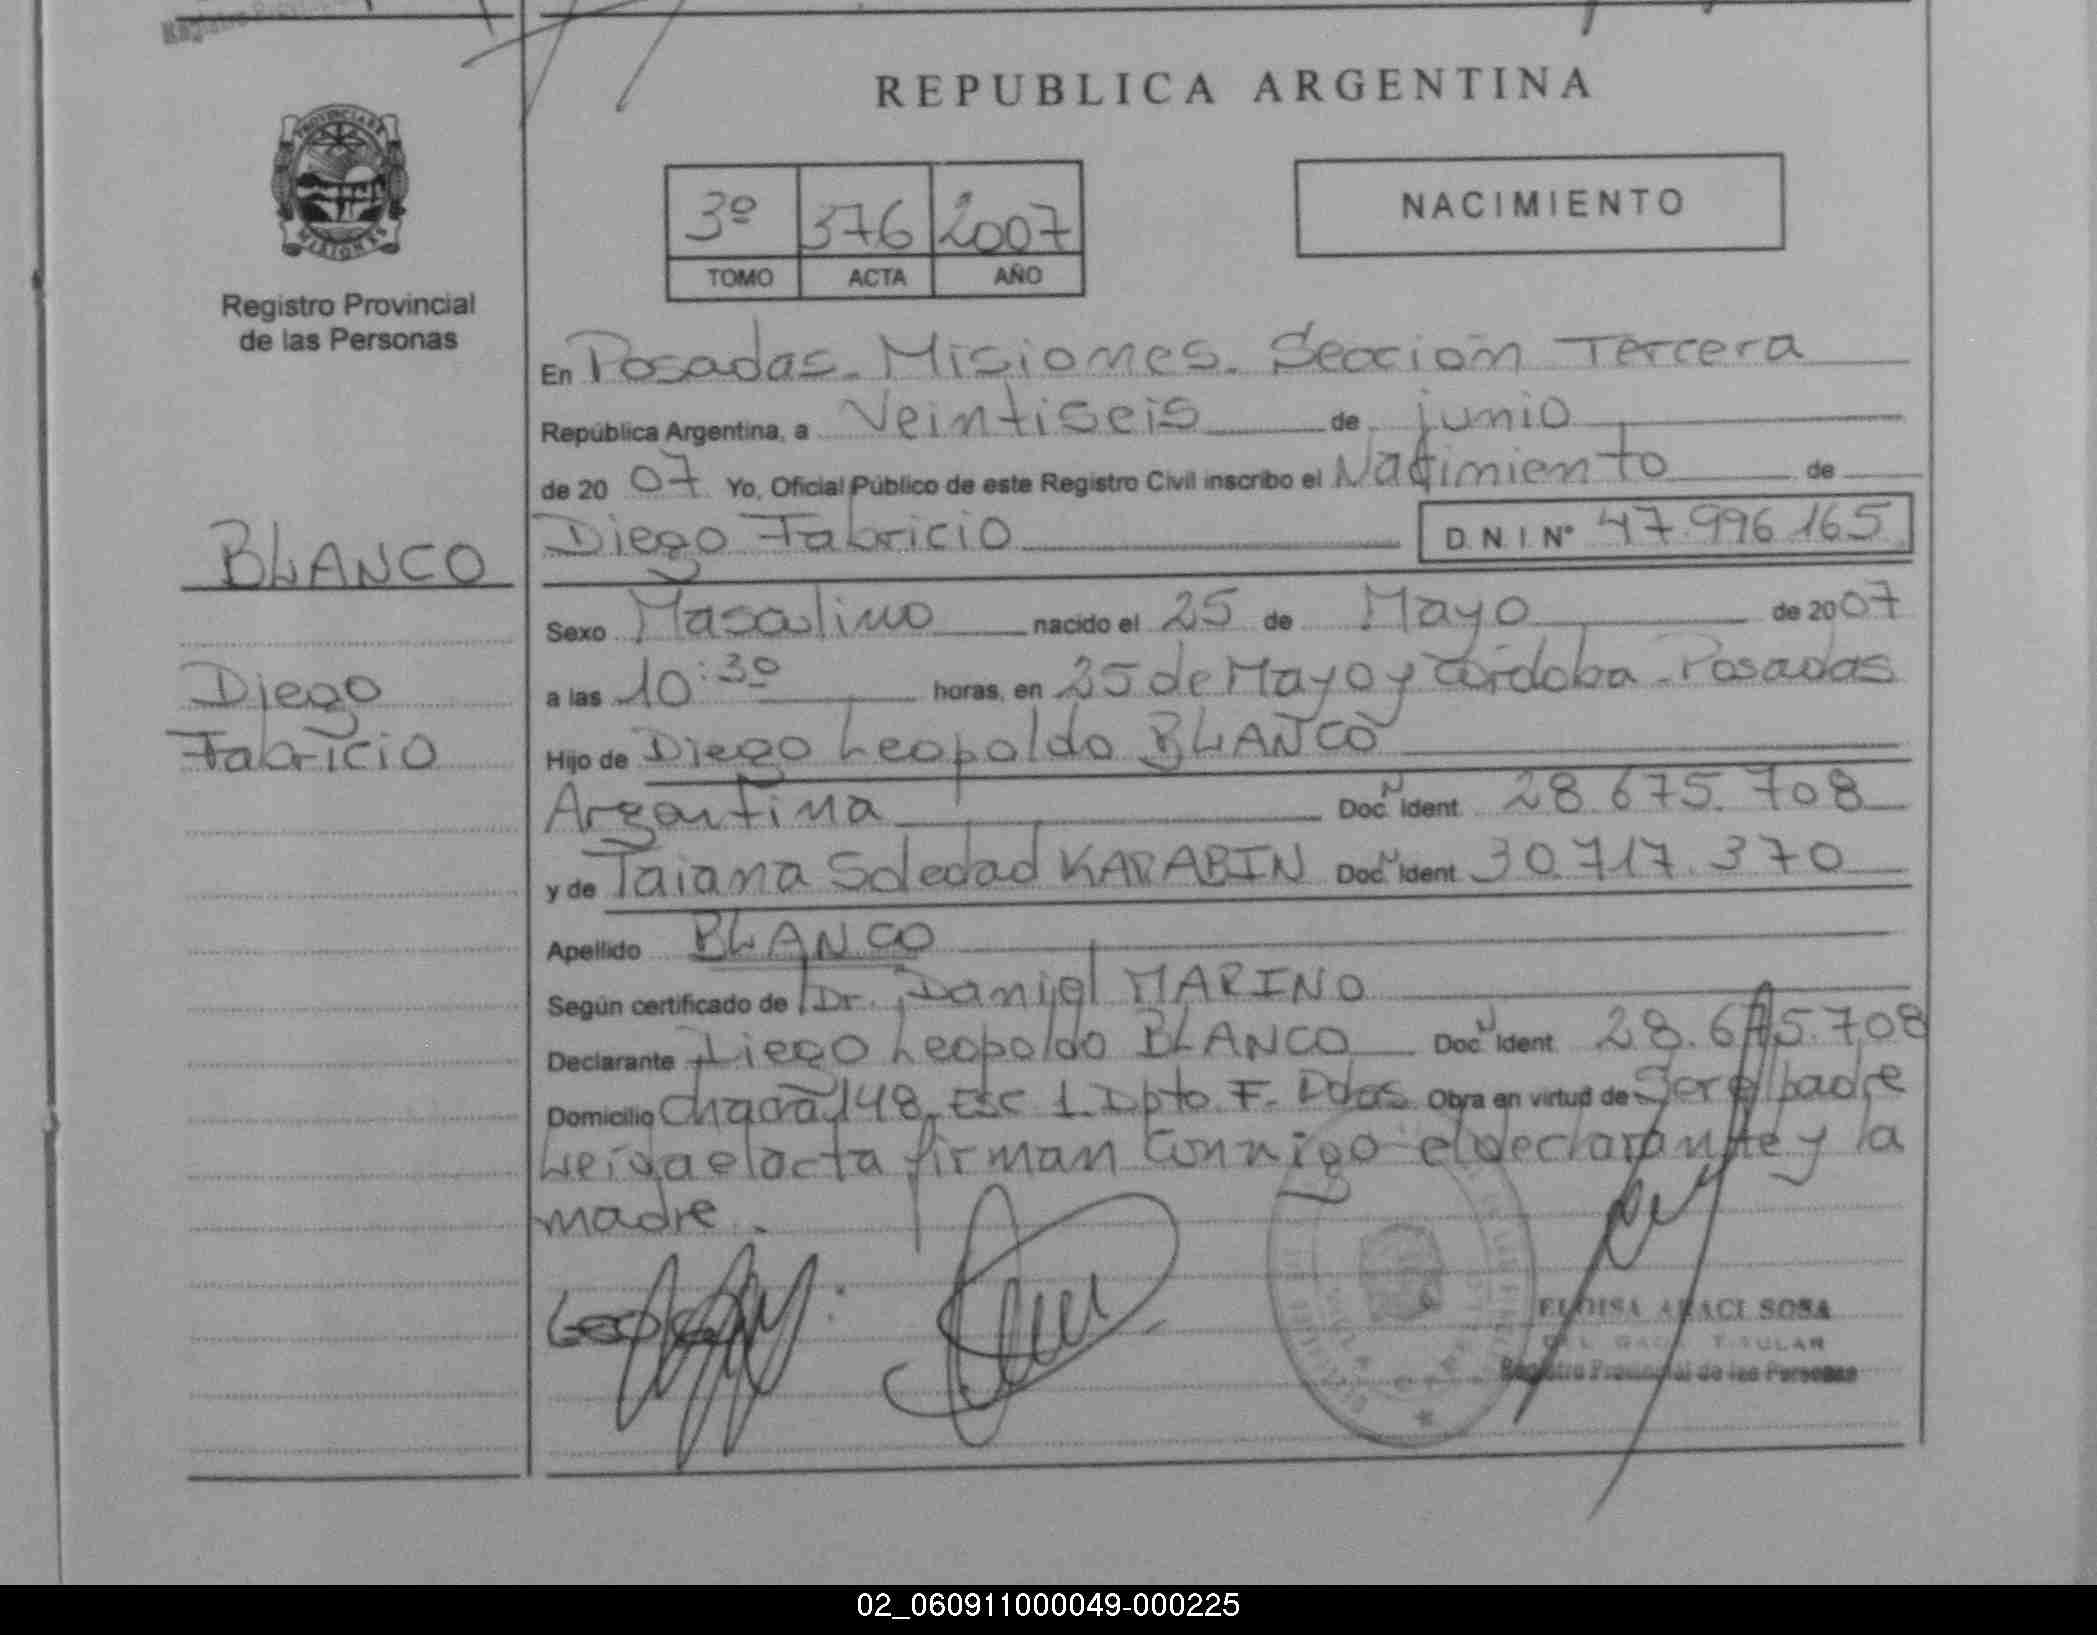 REPUBLICA ARGENTINA
PROVINCIA DE
MISIONES
Registro Provincial
de las Personas
3º 376 2007
TOMO ACTA AÑO
NACIMIENTO
En Posadas. Misiones. Sección Tercera
República Argentina, a Veintiseis de junio
de 2007 Yo, Oficial Público de este Registro Civil inscribo el Nacimiento de
BLANCO
Diego Fabricio D.N.I. Nº 47.996.165
Sexo Masculino nacido el 25 de Mayo de 2007
Diego
a las 10:30 horas, en 25 de Mayo y Córdoba - Posadas
Fabricio
Hijo de Diego Leopoldo BLANCO
Argentina Doc. N Ident. 28.675.708
y de Taiana Soledad KARABIN Doc. N Ident. 30.717.370
Apellido BLANCO
Según certificado de Dr. Daniel MARINO
Declarante Diego Leopoldo BLANCO Doc. N Ident. 28.675.708
Domicilio Chacra 148. Esc 1. Dpto. F. Pdas Obra en virtud de Ser el padre
Leída el acta firman conmigo el declarante y la
madre.
ELOISA ARACI SOSA
TITULAR
Registro Provincial de las Personas
02_060911000049-000225